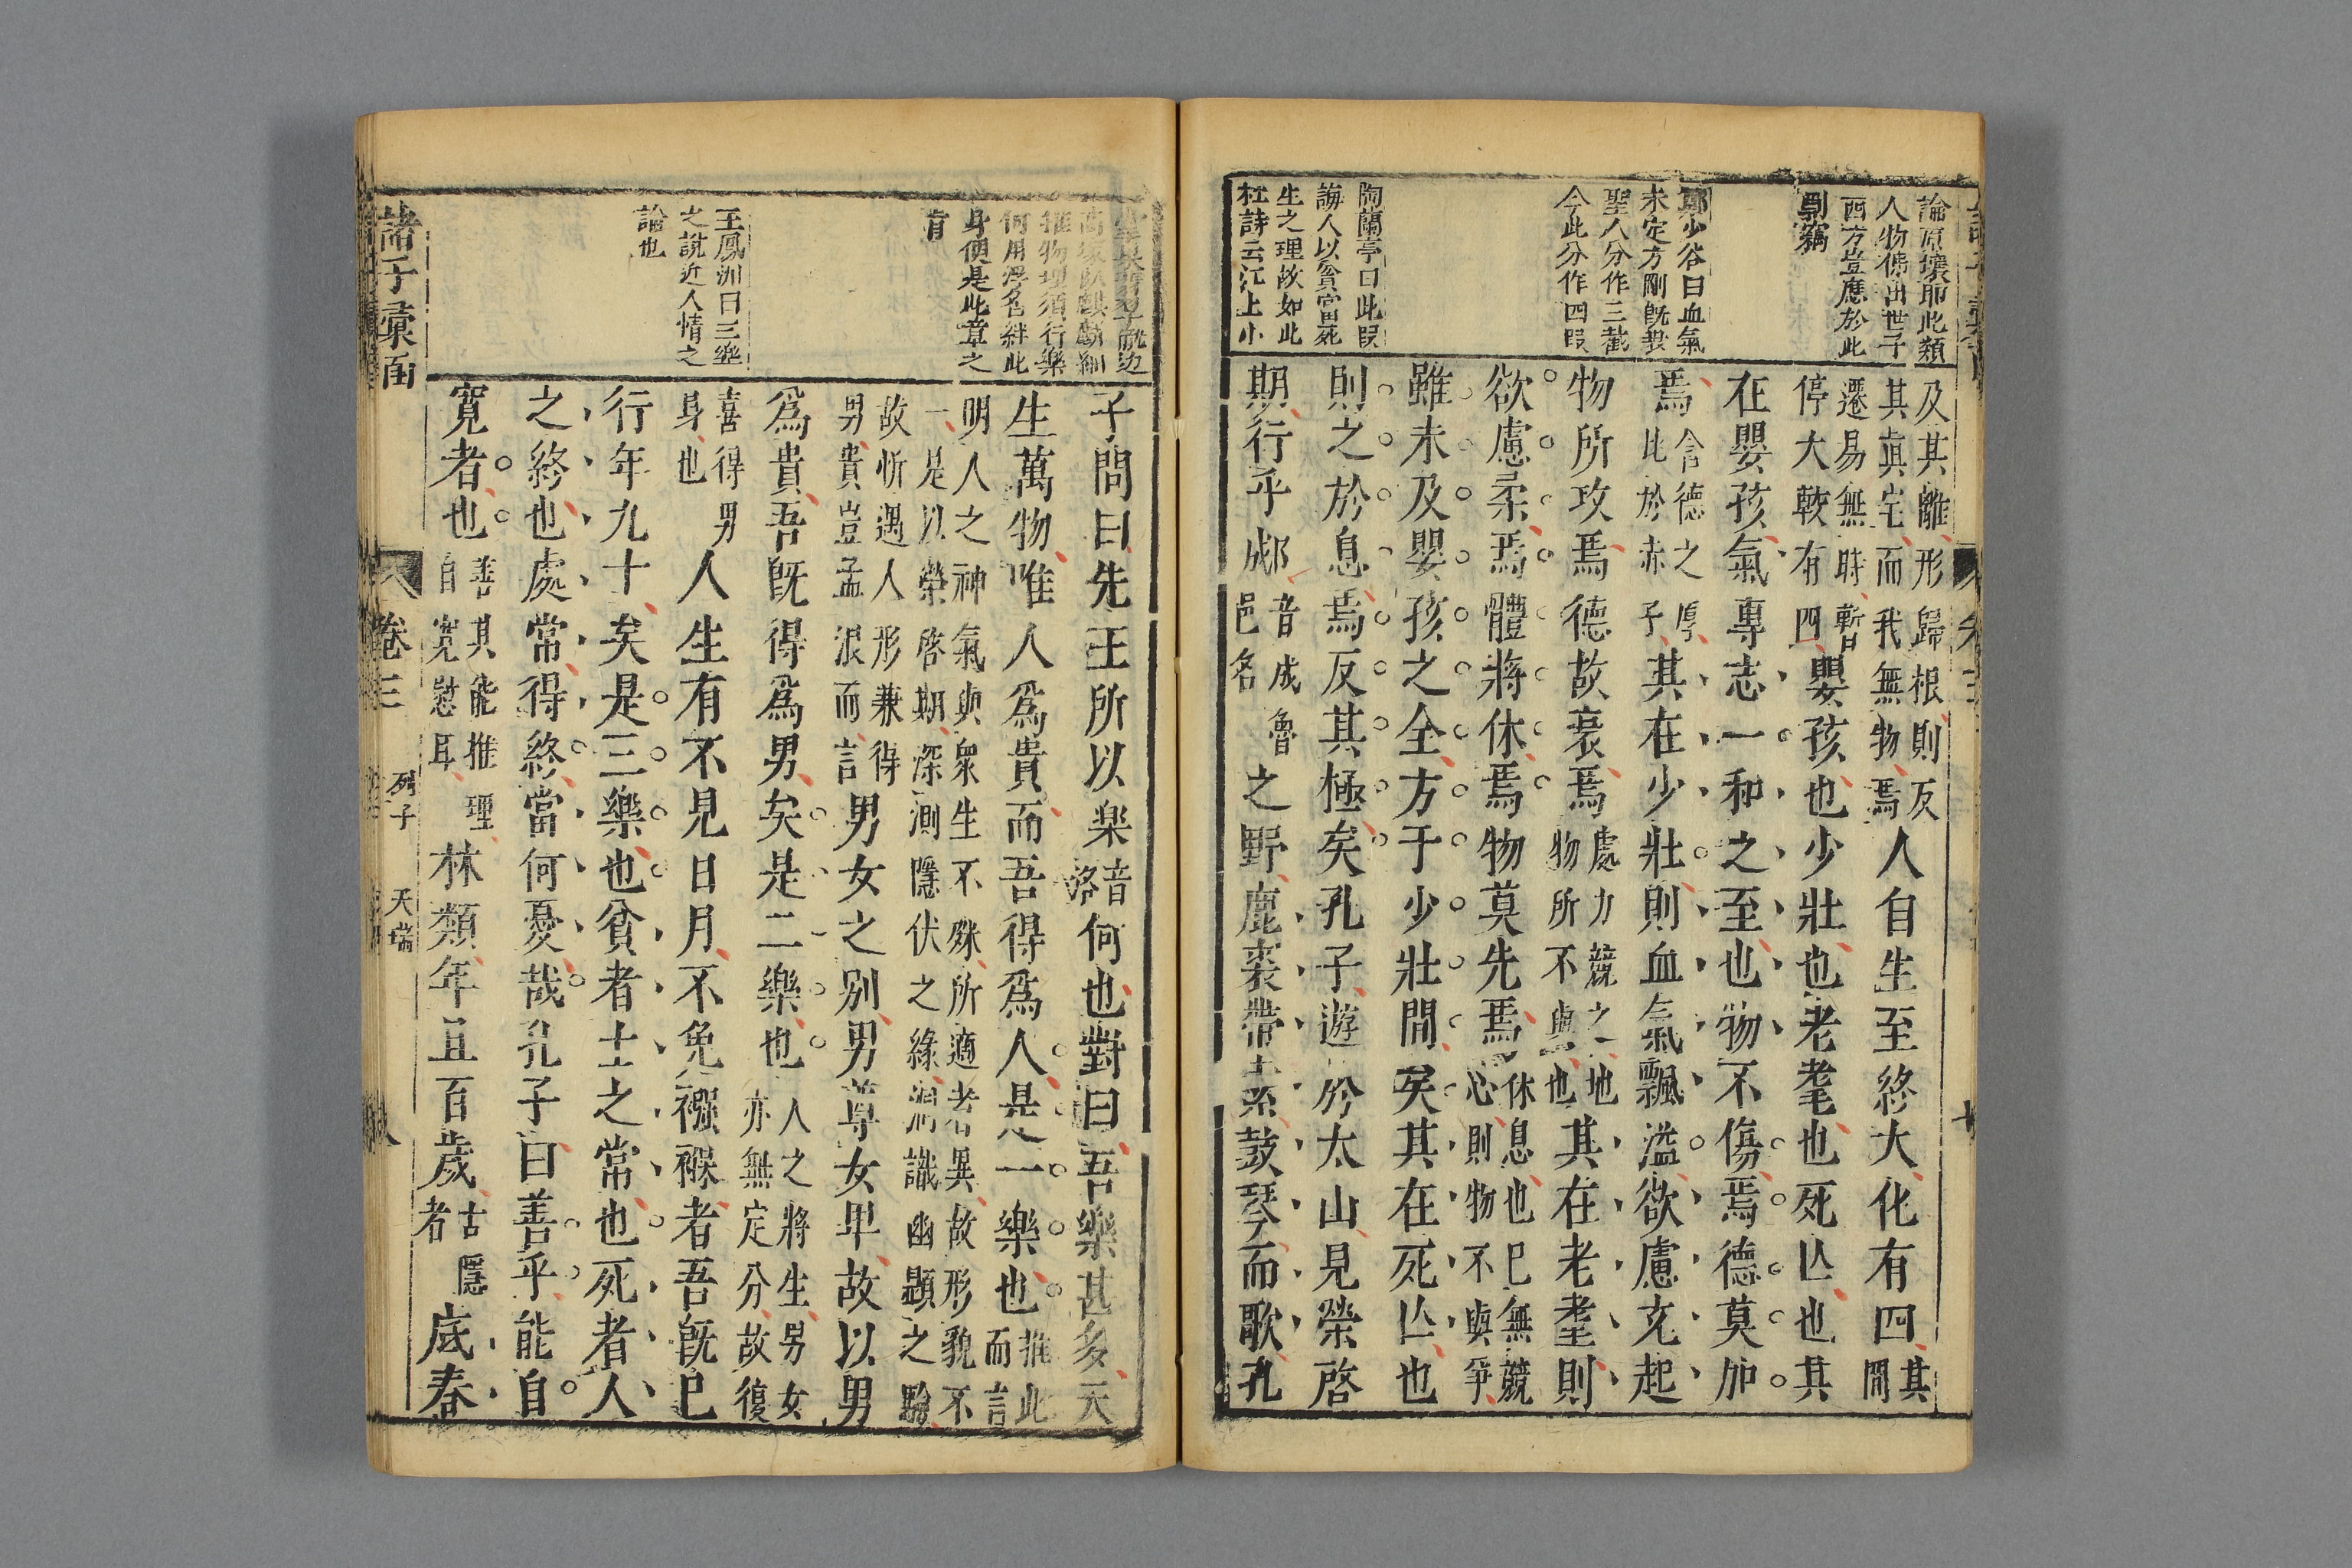 論原壤即此類
人物佛出世子
西方豈應於此
剽竊
鄭少谷曰血氣
未定方剛既衰
聖人分作三截
今此分作四叚
陶蘭亭曰此叚
誨人以貧富死
生之理故如此
杜詩云江上小
及其離形歸根則反
其眞宅而我無物焉人自生至終大化有四其
間
遷易無時暫
停大較有四嬰孩也少壯也老耄也死亾也其
在嬰孩氣專志一和之至也物不傷焉德莫加
焉含德之厚
比於赤子其在少壯則血氣飄溢欲慮充起
物所攻焉德故衰焉處力競之地
物所不與也其在老耄則
欲慮柔焉體將休焉物莫先焉休息也已無競
心則物不與爭
雖未及嬰孩之全方于少壯間矣其在死亾也
則之於息焉反其極矣孔子遊於太山見榮啓
期行乎郕音成魯
邑名之野鹿裘帶索鼓琴而歌孔
推物理須行樂
何用浮名絆此
身便是此章之
肯
王鳳洲曰三樂
之說近人情之
論也
子問曰先王所以楽音
洛何也對曰吾樂甚多天
生萬物唯人爲貴而吾得爲人是一樂也推此
而言
明人之神氣與衆生不殊所適者異故形貌不
一是以榮啓期深測隱伏之緣洞識幽顯之驗
故忻遇人形兼得
男貴豈孟浪而言男女之別男尊女卑故以男
爲貴吾既得爲男矣是二樂也人之將生男女
亦無定分故復
喜得男
身也人生有不見日月不免襁褓者吾既已
行年九十矣是三樂也貧者士之常也死者人
之終也處常得終當何憂哉孔子曰善乎能自
寬者也善其能推理
自寬慰耳林類年且百歲古隱
者底春
諸子彙函
卷三
列子
天瑞